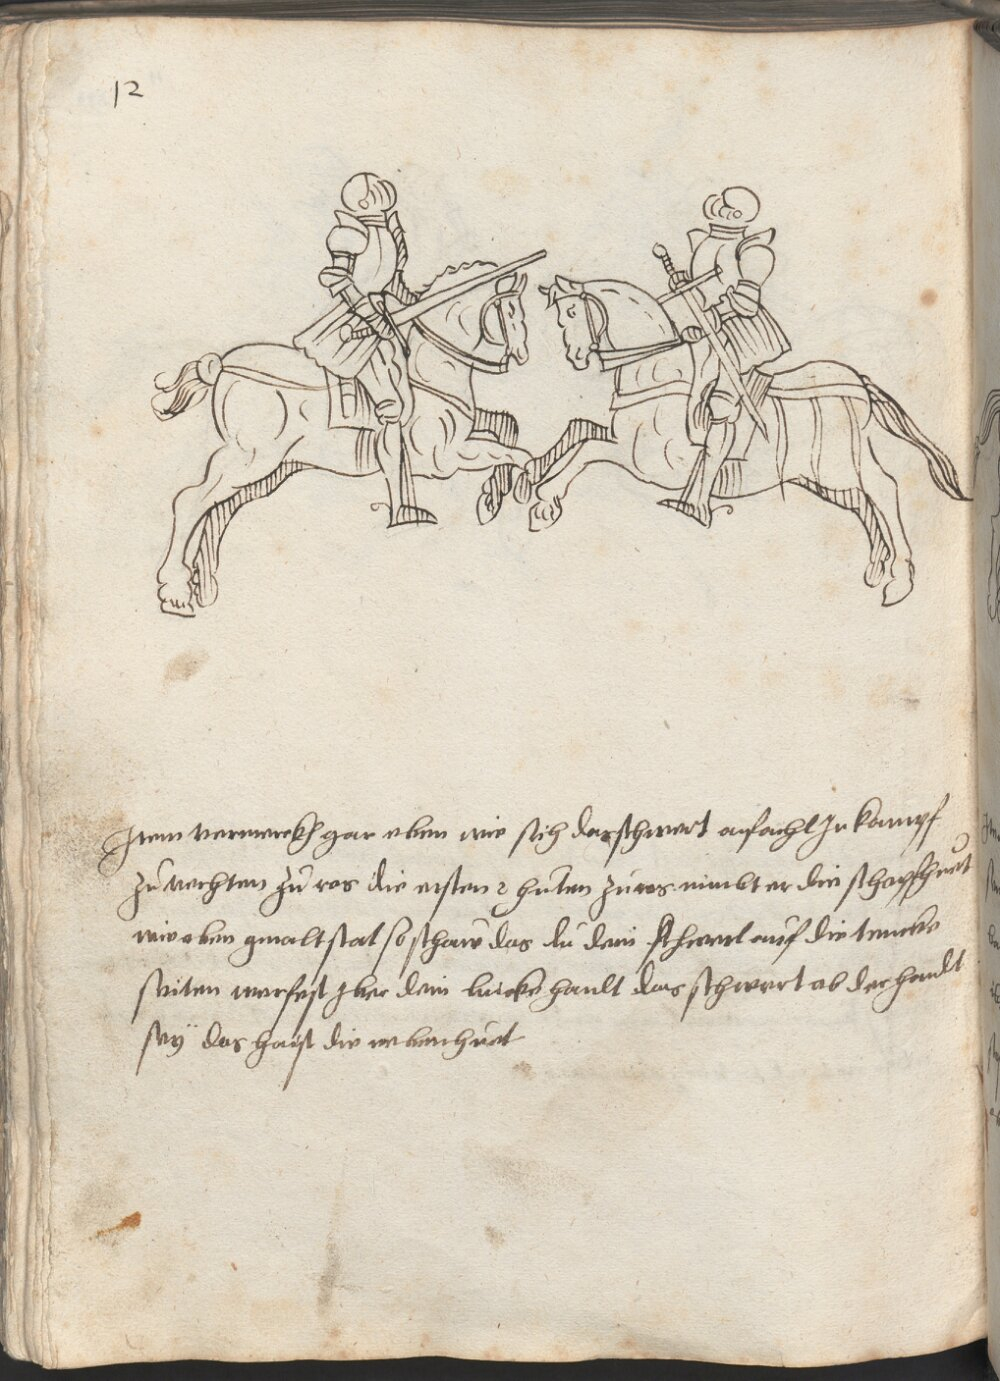 12
Item vermerckh gar eben wie sich das schwert anfacht In kampf
zu vechten zu ros die ersten 2 huten zu ros nimbt er die schosshuet
wie oben gmalt stat so schaw das du dein schwert auf die tencke
seiten werfest yber dein lincke handt das schwert ab der handt
sey das haist die nebenhuet